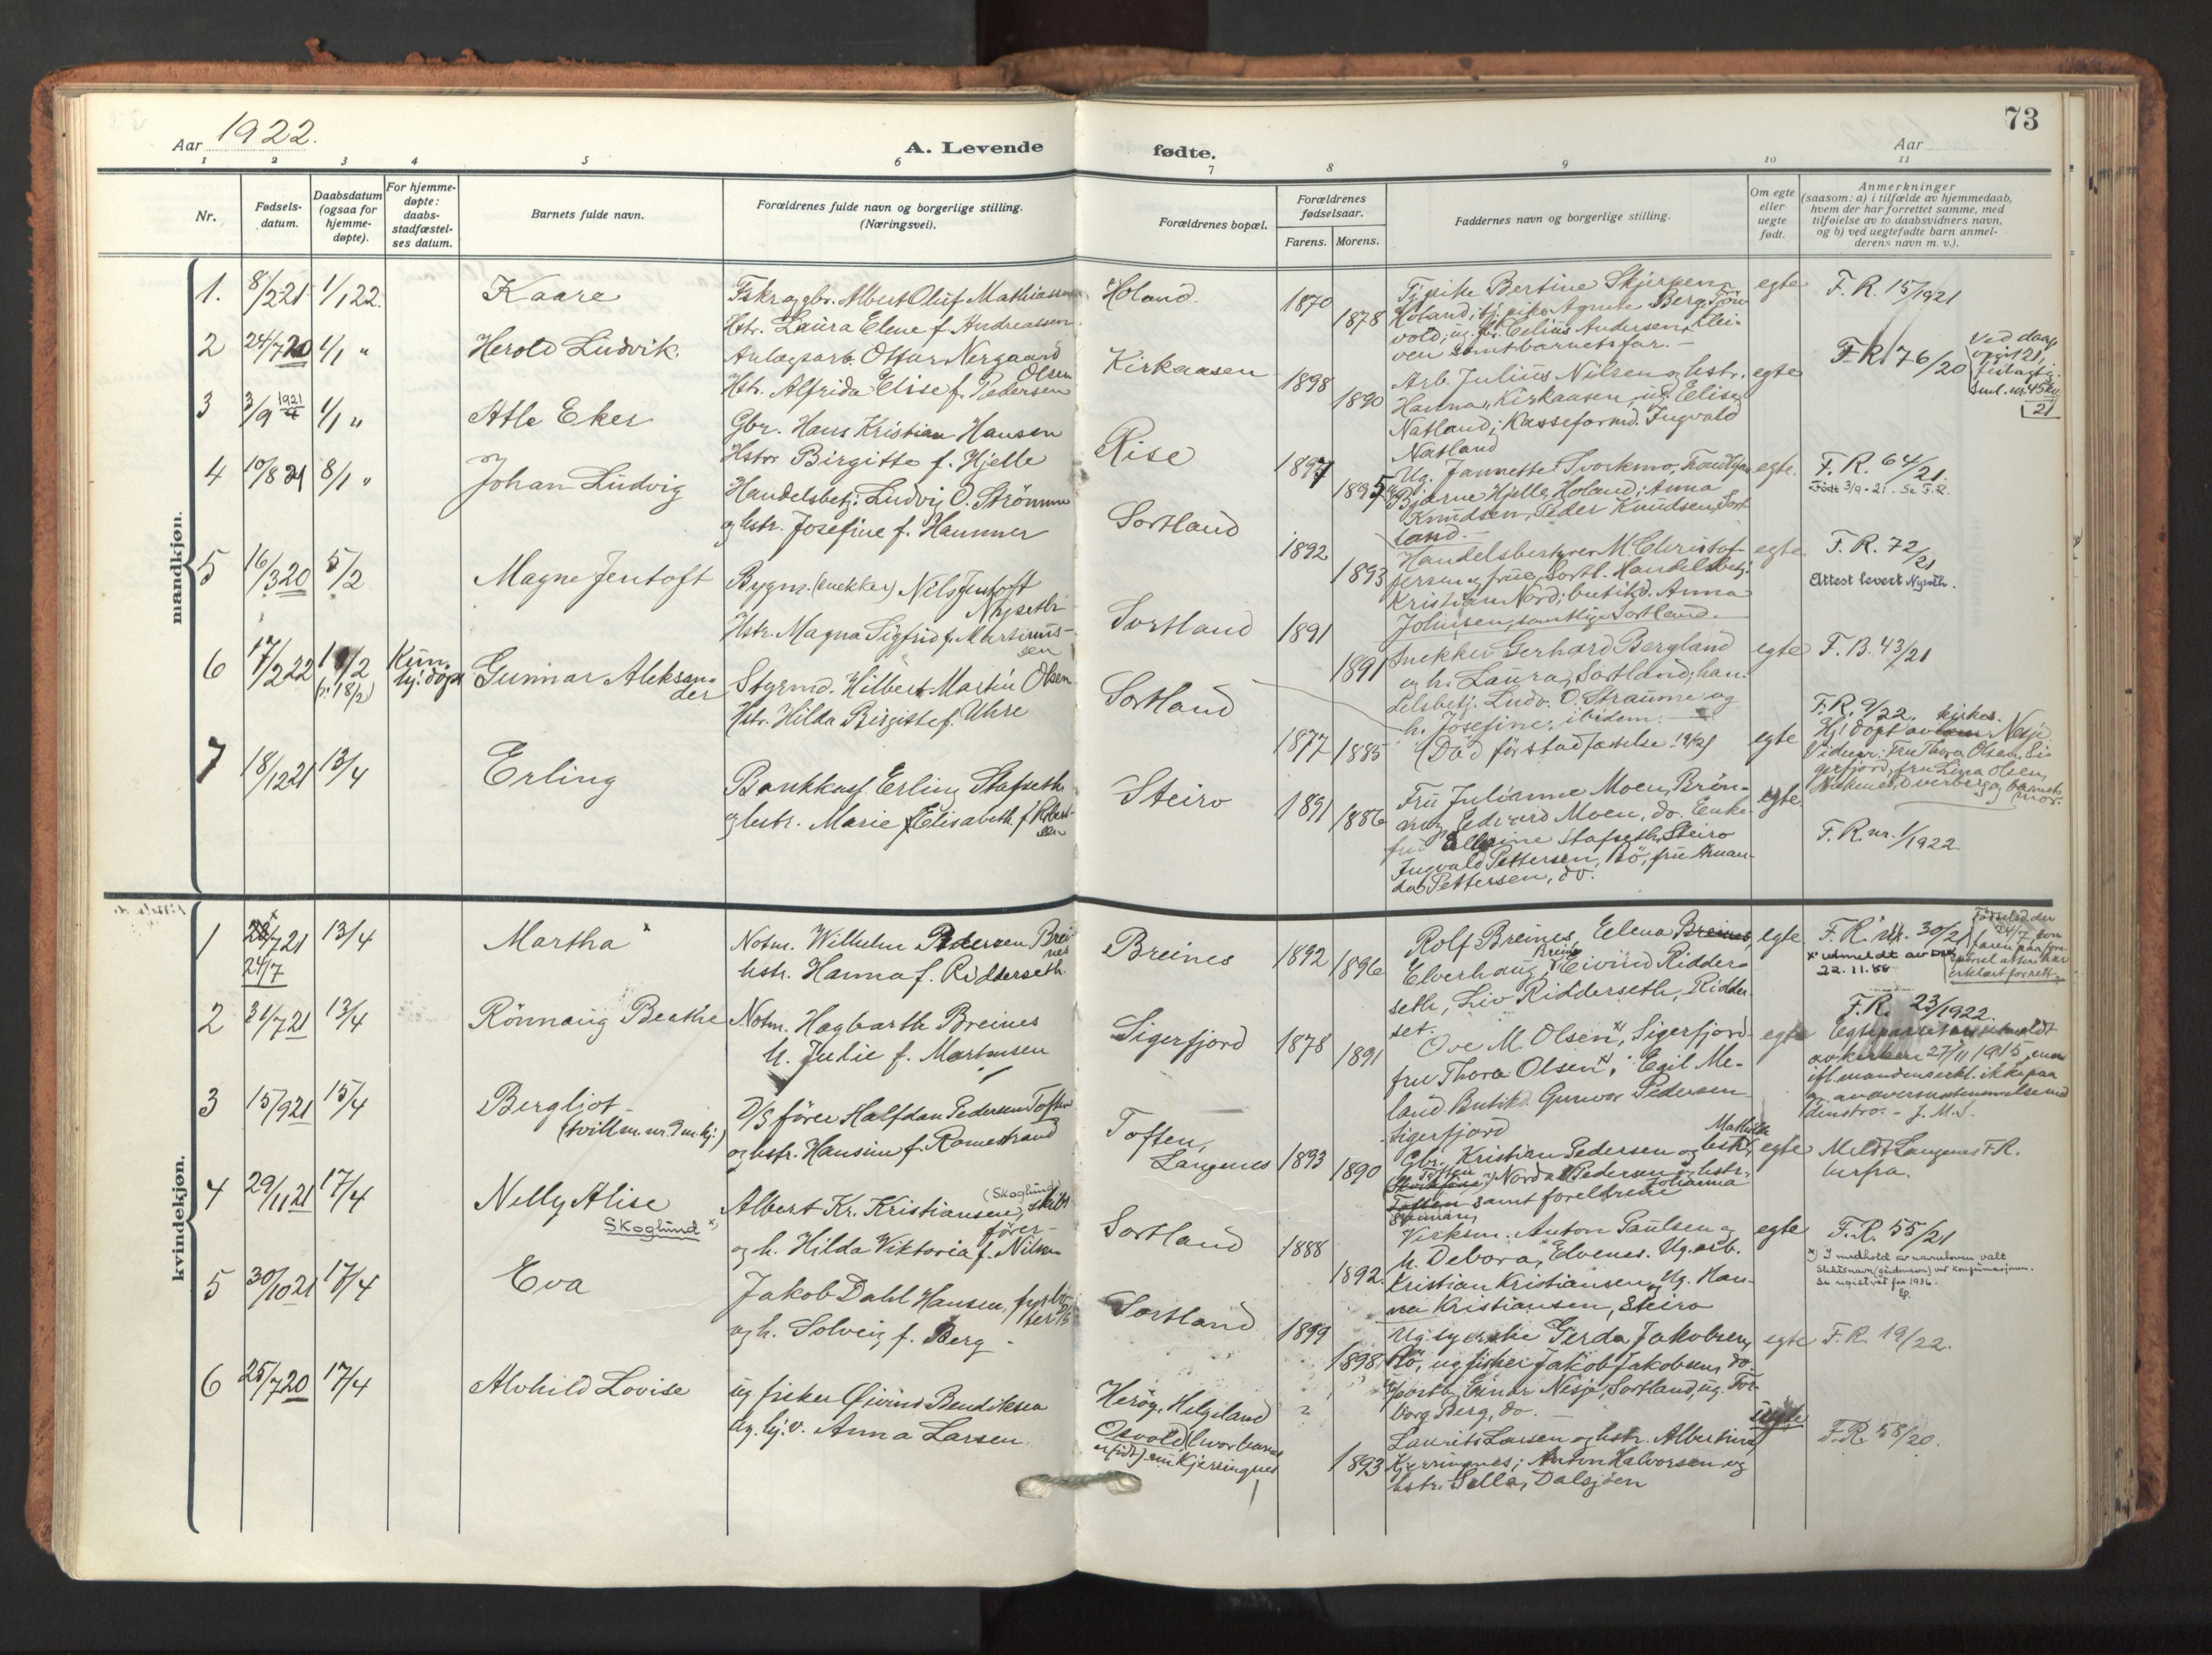 Aar 1922.
A. Levende
fødte.
73
Aar
1 2 3 4 5 6 7 8 9 10 11
Nr.
Fødsels-
datum.
Daabsdatum
(ogsaa for
hjemme-
døpte).
For hjemme-
døpte:
daabs-
stadfæstel-
ses datum.
Barnets fulde navn.
Forældrenes fulde navn og borgerlige stilling.
(Næringsvei).
Forældrenes bopæl.
Forældrenes
fødselsaar.
Farens. Morens.
Faddernes navn og borgerlige stilling.
Om egte
eller
uegte
født.
Anmerkninger
(saasom: a) i tilfælde av hjemmedaab,
hvem der har forrettet samme, med
tilføielse av to daabsvidners navn,
og b) ved uegtefødte barn anmel-
derens navn m. v.).
mandkjøn.
1. 8/2 21. 1/1 22. Kaare
Albert Oluf Mathiassen
Hstr. Laura Elene f. Andreassen
Holand.
1870 1878
Bertine Skjerpen
Holand; tj. pike Agnete Berg,
vold, Celius Andersen,
ven samt barnets far. -
egte
F. R. 15/1921
2 24/7 20 1/1 " Herold Ludvik.
Anlægsarb. Ottar Nergaard
Olsen
Hstr. Alfrida Elise f. Pedersen
Kirkaasen
1898 1890
Arb. Julius Nilsen og hstr.
Hanna, Kirkaasen, ug. Elise
Natland; Kasseformd. Ingvald
Natland
egte
F. R. 76/20
3 3/9 1921 1/1 " Atle Eker
Gbr. Hans Kristian Hansen
Hstr. Birgitte f. Hjelle
Rise
1897 1895
Ug. Jannette Svorkmo,
Bjarne Hjelle, Holand; Anna
Knudsen, Peder Knudsen, Sort
land. -
egte.
F. R. 64/21.
Født 3/9-21. Se F.R.
4 10/8 21 8/1 " Johan Ludvig
Handelsbetj. Ludvig O. Strømme
og hstr. Josefine f. Hammer
Sortland
1892 1893
Handelsbestyrer M. Christof-
fersen og frue, Sortl. Handelsbetj.
Kristian Nord; butikd. Anna
Johnsen, samtlige Sortland.
egte
F. R. 72/21
Attest levert
5 16/3 20 5/2 Magne Jentoft
Bygm. (snekker) Nils Jentoft
Nyseth
Hstr. Magna Sigfrid f. Martinus-
sen
Sortland
1891 1891
Snekker Gerhard Bergland
og h. Laura, Sortland; han-
delsbetj. Ludv. O. Straume og
h. Josefine, ibidem. -
egte
F. B. 43/21
6 17/2 22 18/2 Gunnar Aleksan-
der
(: 18/2)
Kun
hj. døpt
Styrmd. Hilbert Martin Olsen
Hstr. Hilda Birgitte f. Uhre
Sortland
1877 1885
(Død før stadfæstelse 19/2)
egte
F. R. 9/22. kirkes.
Hj. døpt av Nesje.
Vidner: fru Thora Olsen, Si-
gerfjord, fru Lina Olsen,
Dverberg og barnets
mor.
7 18/12 21 13/4 Erling
Bankkass. Erling Stafseth
og hstr. Marie Elisabeth f. Robert-
sen
Steiro
1891 1886
Fru Julianne Moen, Brøn-
nøy, Edvard Moen, do. Enke-
fru Elline Stafseth, Steiro
Ingvald Pettersen, Bø, fru Aman-
da Pettersen, do.
egte
F. R. nr. 1/1922
kvindekjøn.
1 28/7 21 13/4 Martha x
24/7
Notm. Wilhelm Pedersen Brei
nes
hstr. Hanna f. Ridderseth
Breines
1892 1896
Rolf Breines, Elena Breines,
Elverhaug, Eivind Ridder-
seth, Liv Ridderseth, Ridder-
set.
egte
F. R. nr. 30/21
x utmeldt av DNK
22.11.88
2 31/7 21 13/4 Rönnaug Beathe
Notm. Hagbarth Breines
h. Julie f. Martinsen
Sigerfjord
1878 1891
Ove M. Olsen x), Sigerfjord
fru Thora Olsen x), Egil Me-
land Butikd. Gunvor Pedersen
Sigerfjord
egte
F. R. 23/1922.
Egteparret er utmeldt
av kirken 27/11 1915, men
ifl. mandens erkl. ikke paa
- J. M. S.
3 15/9 21 15/4 Bergljot
(tvill m. nr. 9 m. kj.)
D/S fører Halfdan Pedersen Toften
og hstr. Hansine f. Romestrand
Toften,
Langenes
1893 1890
Gbr. Kristian Pedersen og hstr. Mathilde
Toften, Nordal Pedersen og hstr.
Johanna
samt foreldrene
egte
Meldt Langenes F. R.
herfra.
4 29/11 21 17/4 Nelly Alise
Skoglund x)
Albert Kr. Kristiansen, (Skoglund) skibs
fører
og h. Hilda Viktoria f. Nilsen
Sortland
1888 1892.
Virksm. Anton Paulsen og
h. Debora, Elvenes. Ug. arb.
Kristian Kristiansen, Ug. Han-
na Kristiansen, Steiro
egte
F. R. 55/21
x) I medhold av navneloven valt
Slektsnavn (gårdsnavn) ved konfirmasjonen.
Se registret for 1936.
5 30/10 21 17/4 Eva
Jakob Dahl Hansen, fyrbø
ter D/S
og h. Solveig f. Berg -
Sortland
1899 1898.
Ug. syerske Gerda Jakobsen,
Bø, ug fisker Jakob Jakobsen, do.
postb. Einar Nesje, Sortland, ug. Tor-
borg Berg, do. -
egte
F. R. 19/22.
6 25/7 20 17/4 Alvhild Lovise
ug. fisker Øivind Bendiksen
Ug. hj. v. Anna Larsen
Herøy, Helgeland
Osvold (hvor barnet
er født), nu Kjerringnes
? 1893
Laurits Larsen og hstr. Albertina,
Kjerringnes; Anton Halvorsen og
hstr. Sella, Dalsjøen
uegte
F. R. 58/20.